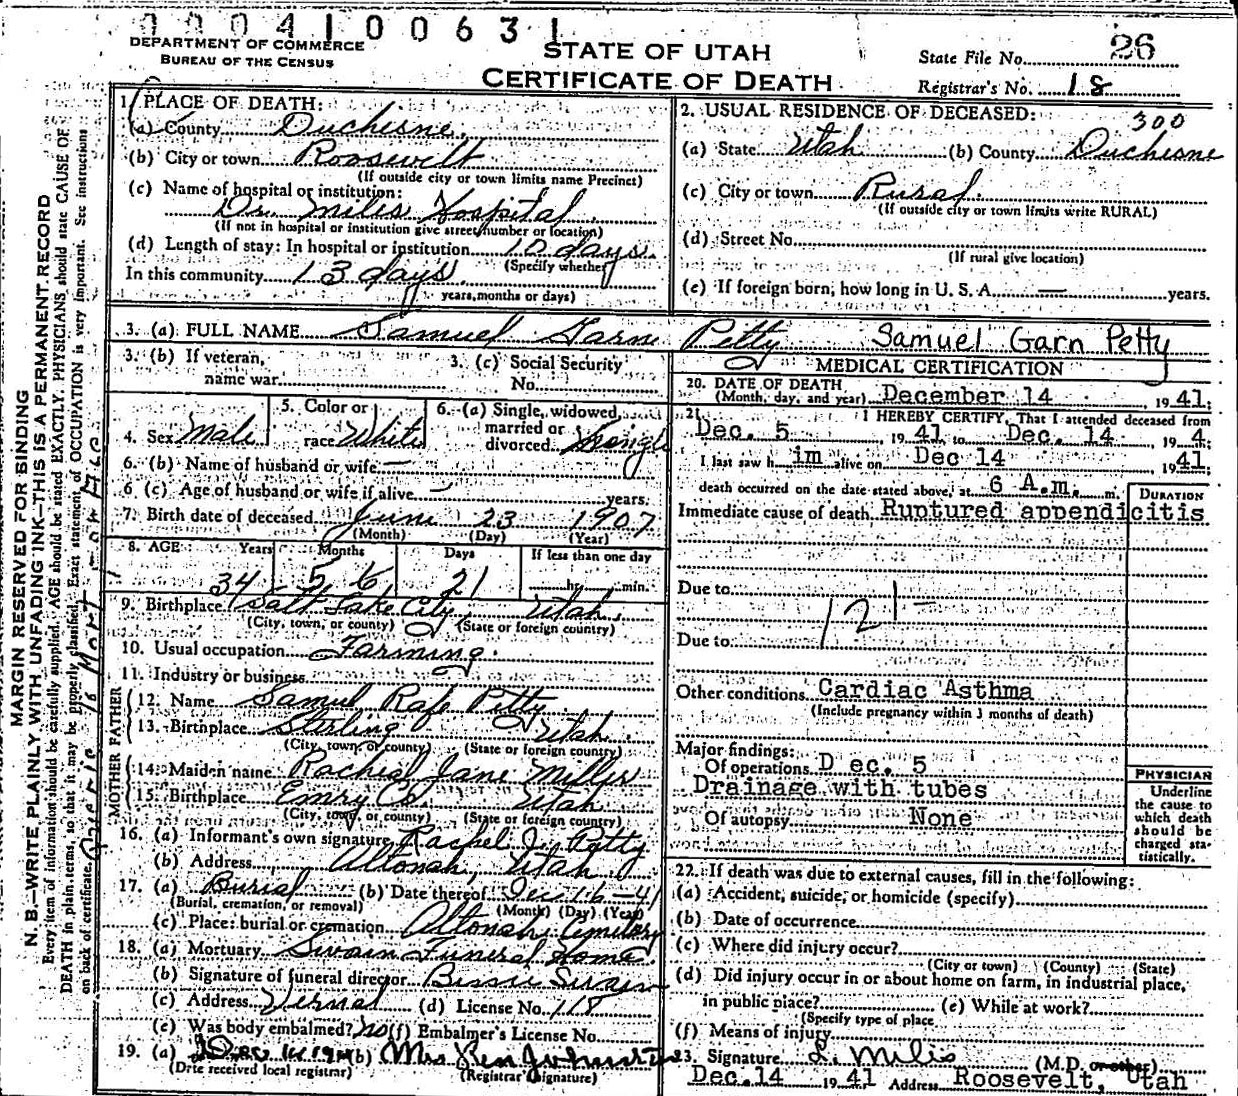 000410 0631
DEPARTMENT OF COMMERCE
BUREAU OF THE CENSUS
STATE OF UTAH
CERTIFICATE OF DEATH
State File No. 26
Registrar's No. 18
MARGIN RESERVED FOR BINDING
N. B.—WRITE PLAINLY WITH UNFADING INK—THIS IS A PERMANENT RECORD
Every item of information should be carefully supplied. AGE should be stated EXACTLY. PHYSICIANS should state CAUSE OF
DEATH in plain terms, so that it may be properly classified. Exact statement of OCCUPATION is very important. See instructions
on back of certificate.
1. PLACE OF DEATH:
(a) County Duchesne.
(b) City or town Roosevelt
(If outside city or town limits name Precinct)
(c) Name of hospital or institution:
Dr. Miles Hospital
(If not in hospital or institution give street number or location)
(d) Length of stay: In hospital or institution 10 days.
(Specify whether
In this community 13 days.
years, months or days)
2. USUAL RESIDENCE OF DECEASED:
300
(a) State Utah (b) County Duchesne
(c) City or town Rural.
(If outside city or town limits write RURAL)
(d) Street No.
(If rural give location)
(e) If foreign born, how long in U. S. A. — years.
3. (a) FULL NAME Samuel Garn Petty Samuel Garn Petty
3. (b) If veteran, name war
3. (c) Social Security No.
4. Sex Male
5. Color or race White
6. (a) Single, widowed, married or divorced Single
6. (b) Name of husband or wife —
6 (c) Age of husband or wife if alive — years.
7. Birth date of deceased June 23 1907
(Month) (Day) (Year)
8. AGE Years Months Days If less than one day
34 5 6 21 hr. min.
9. Birthplace Salt Lake City Utah.
(City, town, or county) (State or foreign country)
10. Usual occupation Farming.
11. Industry or business
FATHER
12. Name Samul Rafe Petty
13. Birthplace Sterling Utah.
(City, town, or county) (State or foreign country)
MOTHER
14. Maiden name Racheal Jane Miller
15. Birthplace Emry Co. Utah
(City, town, or county) (State or foreign country)
16. (a) Informant's own signature Rachel J. Petty
(b) Address Altonah, Utah
17. (a) Burial (b) Date thereof Dec 16-41
(Burial, cremation, or removal) (Month) (Day) (Year)
(c) Place: burial or cremation Altonah Cemitery
18. (a) Mortuary Swain Funeral Home.
(b) Signature of funeral director Bessie Swain
(c) Address Vernal (d) License No. 118
(e) Was body embalmed? no (f) Embalmer's License No.
19. (a) Dec (b) Mrs Ken
(Date received local registrar) (Registrar's signature)
MEDICAL CERTIFICATION
20. DATE OF DEATH
(Month, day, and year) December 14 1941;
21. I HEREBY CERTIFY, That I attended deceased from
Dec. 5, 1941 to Dec. 14, 194;
I last saw him alive on Dec 14 1941;
death occurred on the date stated above, at 6 A.m. m.
DURATION
Immediate cause of death Ruptured appendicitis
Due to
121
Due to
Other conditions Cardiac Asthma
(Include pregnancy within 3 months of death)
Major findings:
Of operations Dec. 5
Drainage with tubes
Of autopsy None
PHYSICIAN
Underline
the cause to
which death
should be
charged sta-
tistically.
22. If death was due to external causes, fill in the following:
(a) Accident, suicide, or homicide (specify)
(b) Date of occurrence
(c) Where did injury occur?
(City or town) (County) (State)
(d) Did injury occur in or about home on farm, in industrial place,
in public place? (e) While at work?
(Specify type of place
(f) Means of injury
23. Signature L. Miles (M.D. or other)
Dec.14 1941 Address Roosevelt, Utah